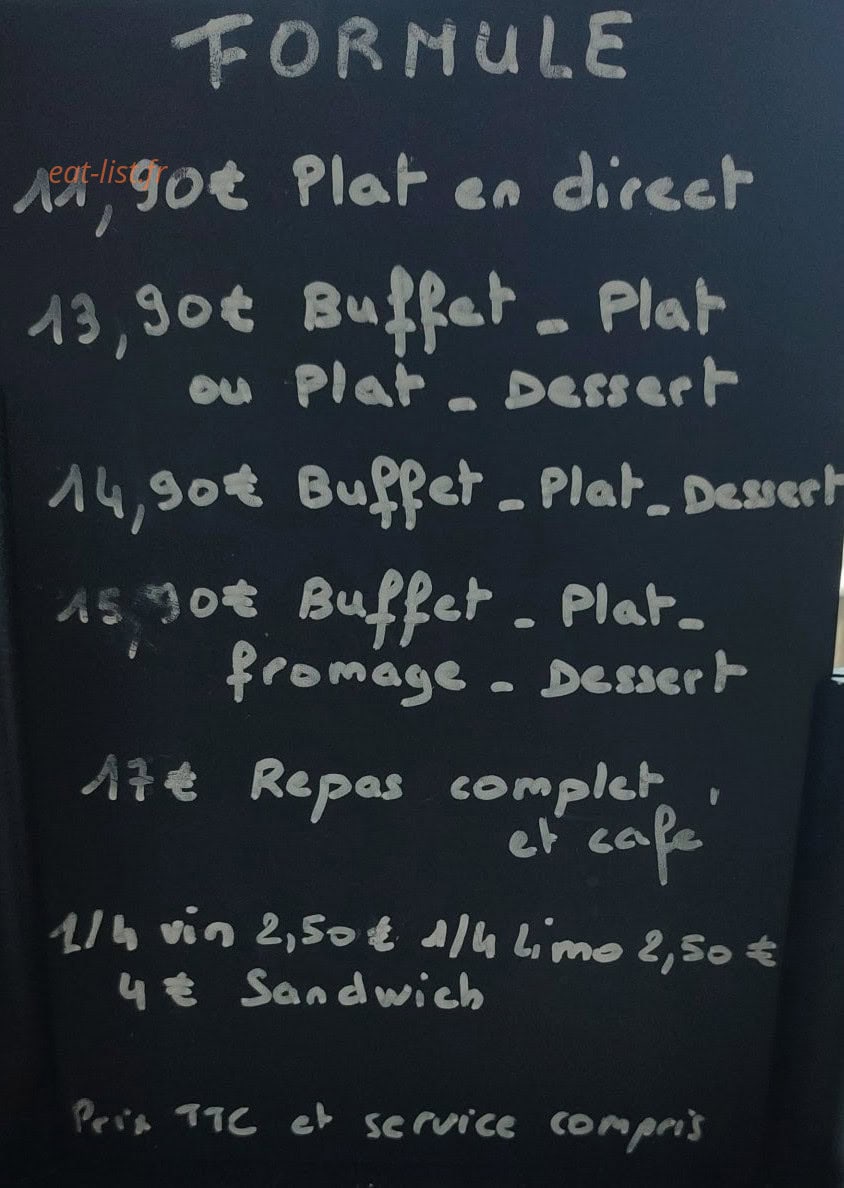 FORMULE
eat-list.fr
11,90€ Plat en direct
13,90€ Buffet - Plat
ou Plat - Dessert
14,90€ Buffet - Plat - Dessert
15,90€ Buffet - Plat -
fromage - Dessert
17€ Repas complet
et café
1/4 vin 2,50€ 1/4 Limo 2,50€
4€ Sandwich
Prix TTC et service compris